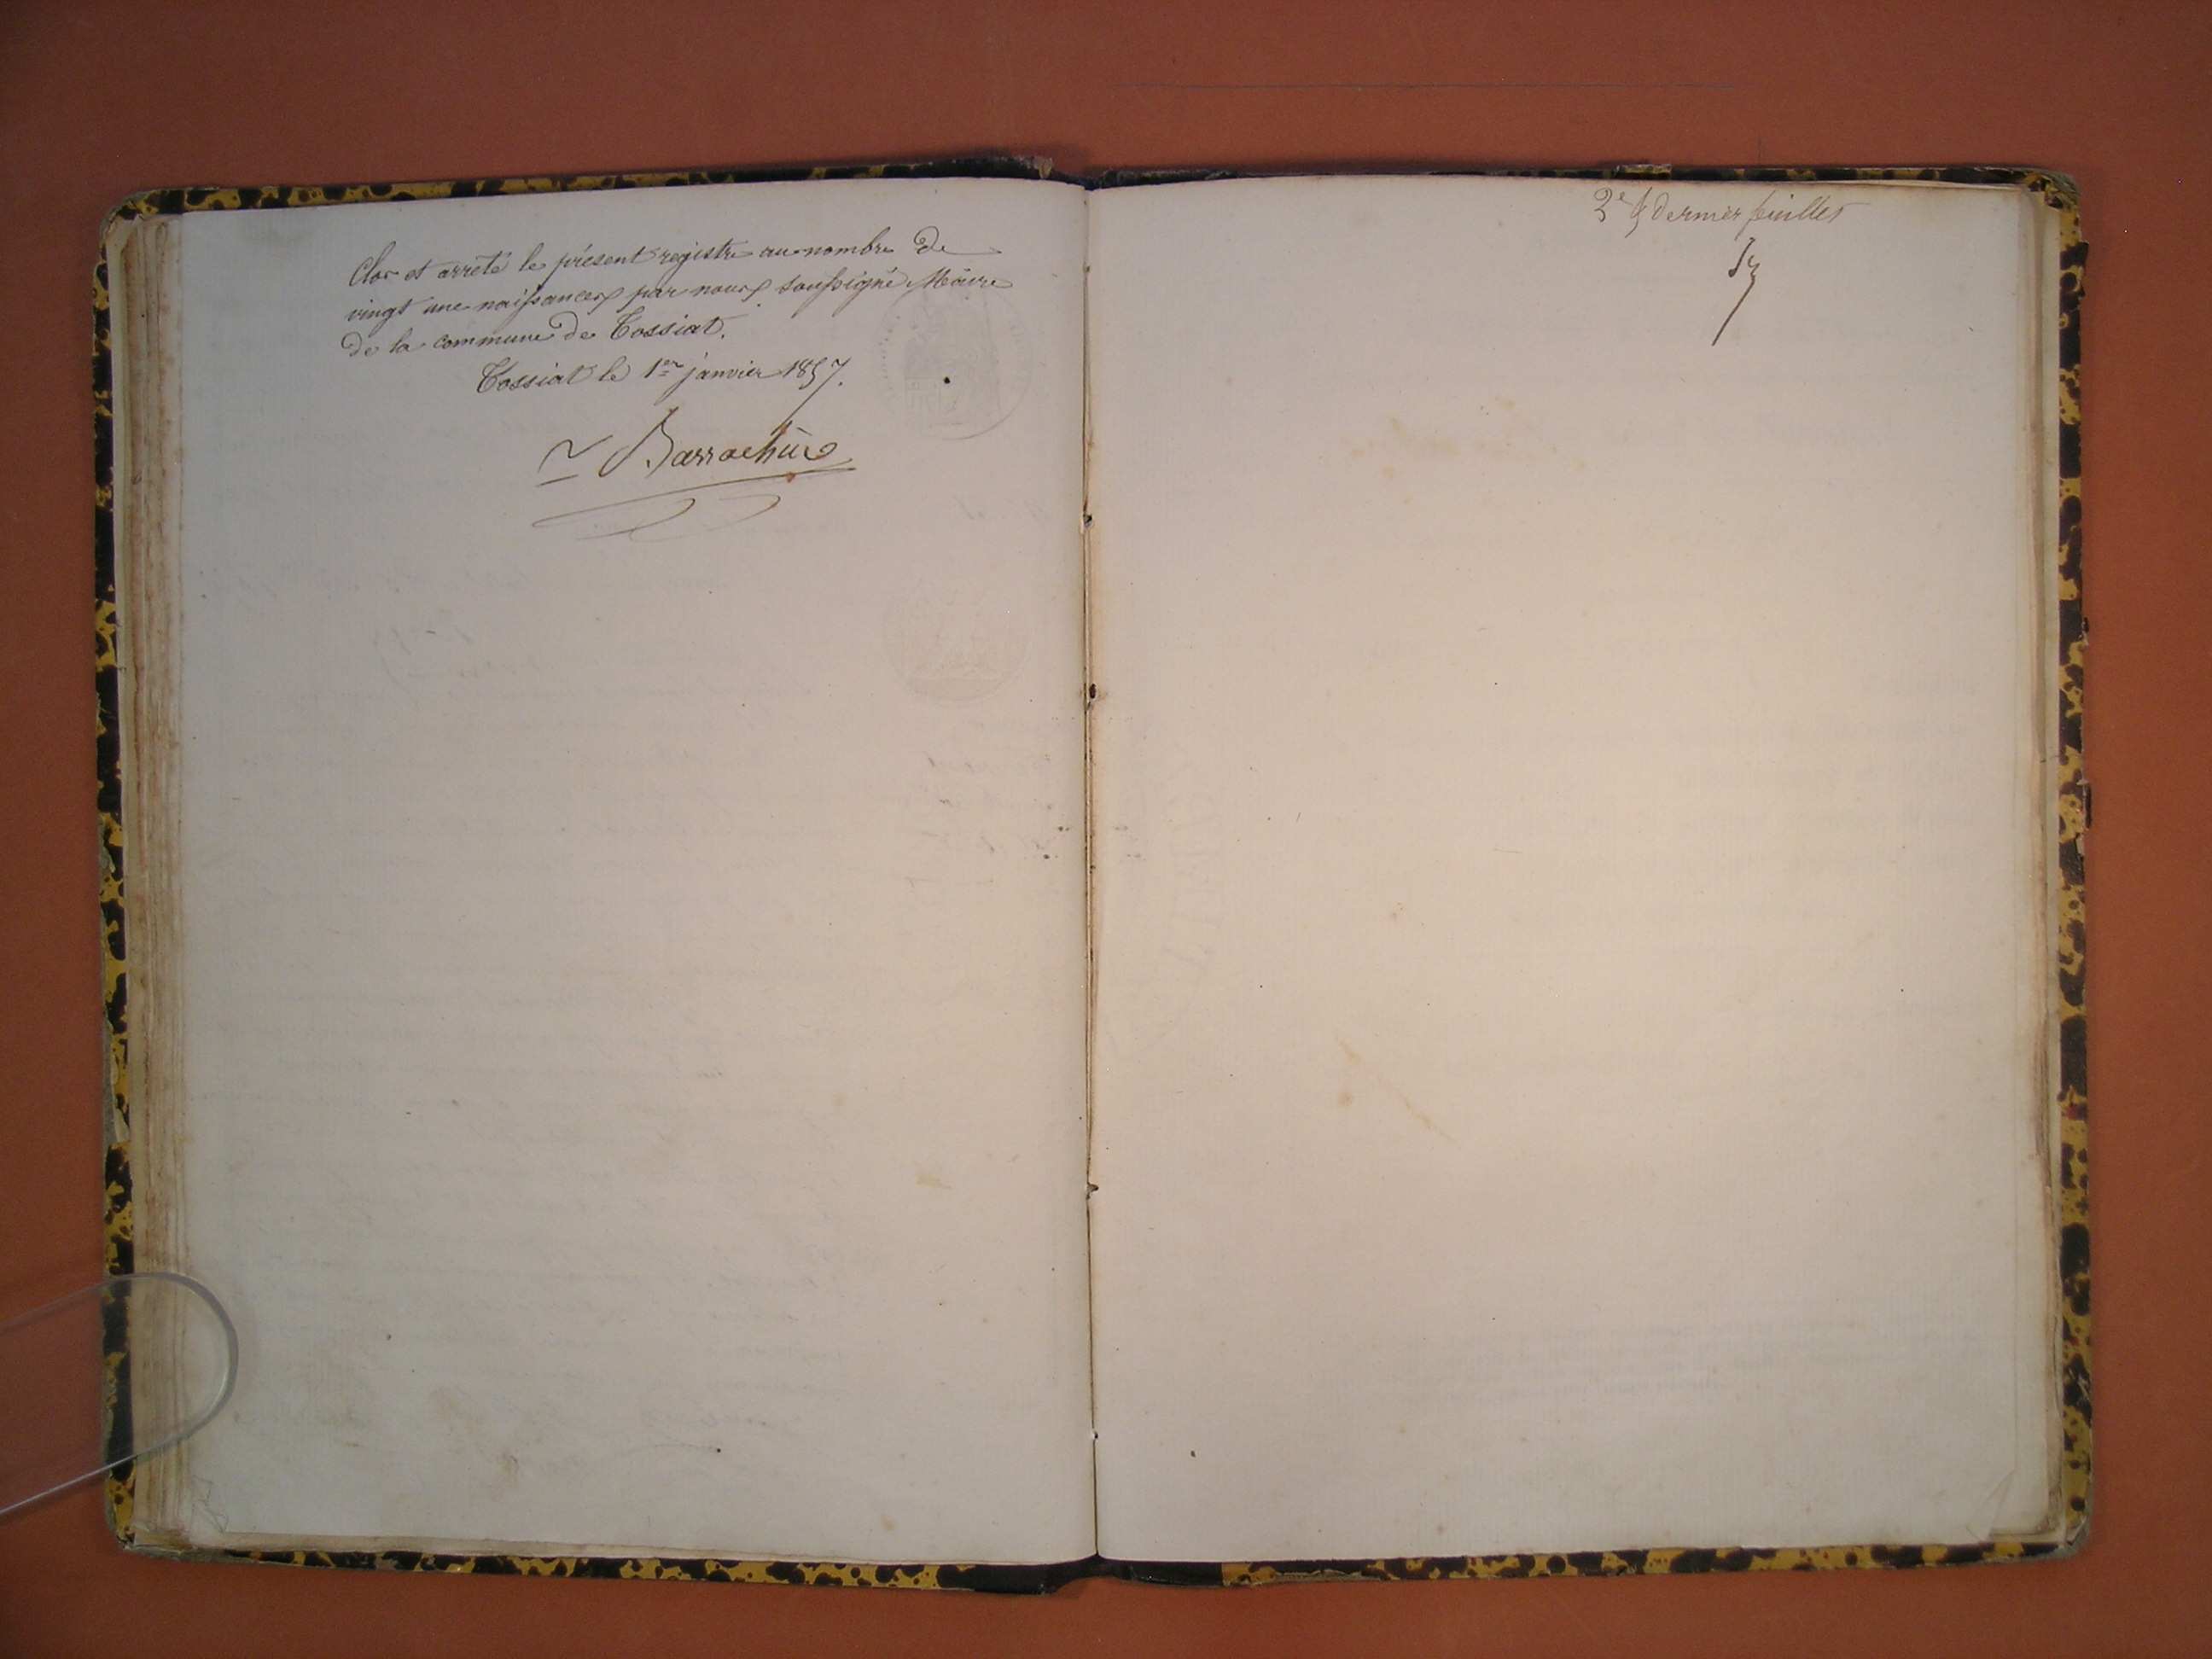 Clos et arrêté le présent registre au nombre de
vingt une naissances par nous soussigné Maire
de la commune de Tossiat.
Tossiat le 1er janvier 1857.
Barrachin
2e & dernier feuillet